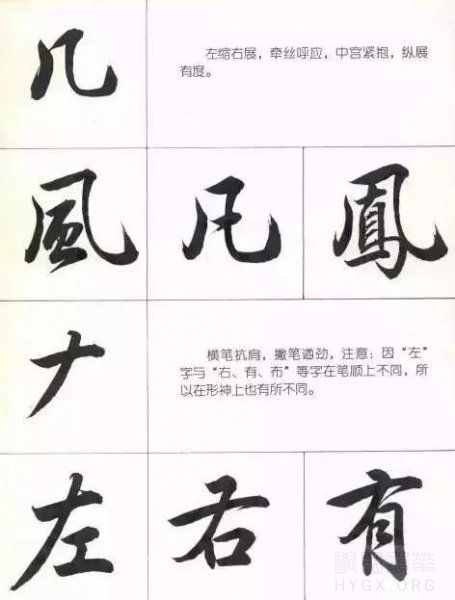 几
左缩右展，牵丝呼应，中宫紧抱，纵展
有度。
風 凡 鳳
𠂇
横笔抗肩，撇笔遒劲，注意：因“左”
字与“右、有、布”等字在笔顺上不同，所
以在形神上也有所不同。
左 右 有
HYGX.ORG